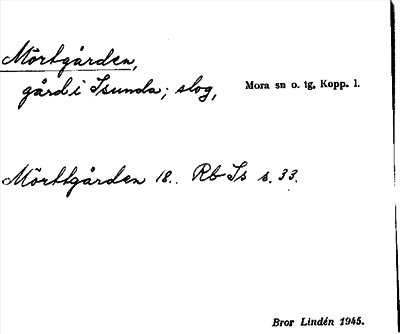 Mörtgården,
gård i Isunda; slog, Mora sn o. tg, Kopp. l.
Mörttgården 18.. Rb Is s. 33.
Bror Lindén 1945.